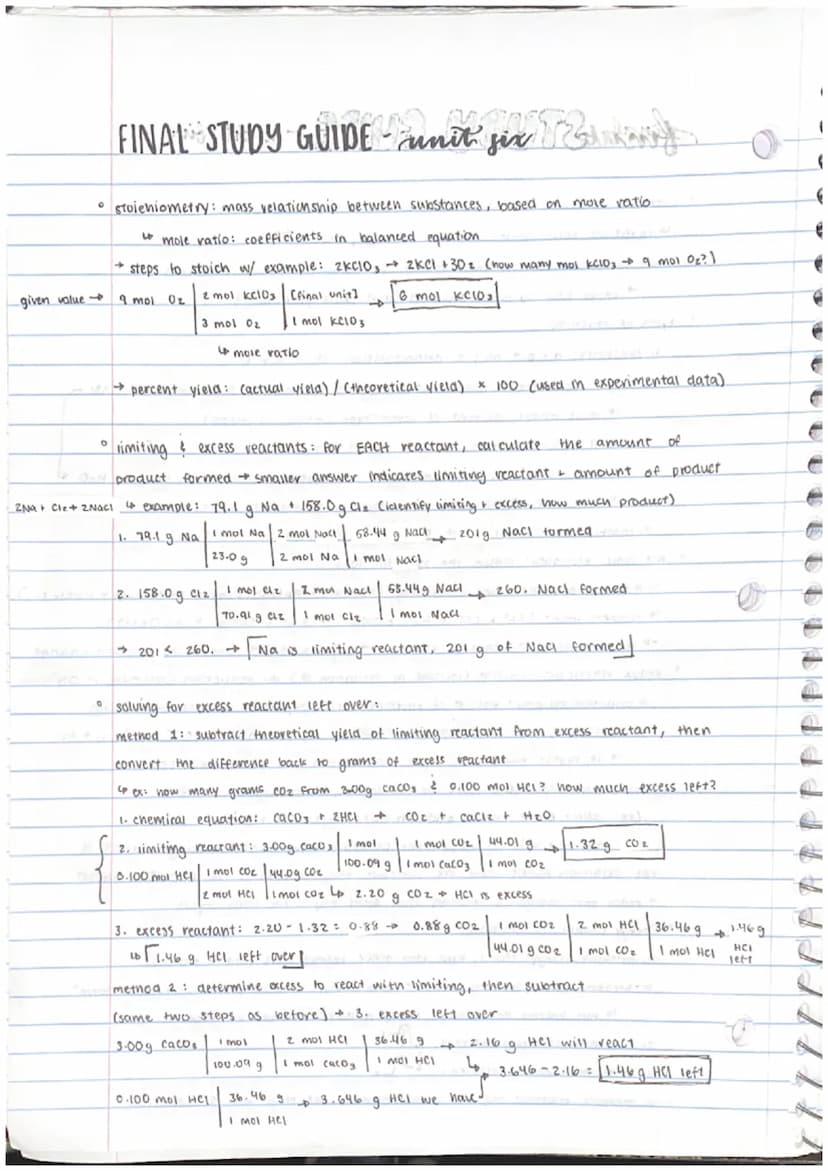 FINAL STUDY GUIDE - unit six
° stoichiometry: mass relationship between substances, based on mole ratio
↳ mole ratio: coefficients in balanced equation
→ steps to stoich w/ example: 2KClO₃ → 2KCl + 3O₂ (how many mol KClO₃ → 9 mol O₂?)
given value → 9 mol O₂ | 2 mol KClO₃ | [final unit] → 6 mol KClO₃
3 mol O₂ | 1 mol KClO₃
↳ mole ratio
→ percent yield: (actual yield) / (theoretical yield) × 100 (used in experimental data)
° limiting & excess reactants: for EACH reactant, calculate the amount of
product formed → smaller answer indicates limiting reactant + amount of product
2Na + Cl₂ → 2NaCl ↳ example: 79.1 g Na + 158.0 g Cl₂ (identify limiting + excess, how much product)
1. 79.1 g Na | 1 mol Na | 2 mol NaCl | 58.44 g NaCl → 201g NaCl formed
23.0 g | 2 mol Na | 1 mol NaCl
2. 158.0 g Cl₂ | 1 mol Cl₂ | 2 mol NaCl | 58.44g NaCl → 260. NaCl formed
70.91 g Cl₂ | 1 mol Cl₂ | 1 mol NaCl
→ 201 < 260. → [Na is limiting reactant, 201 g of NaCl formed]
° solving for excess reactant left over:
method 1: subtract theoretical yield of limiting reactant from excess reactant, then
convert the difference back to grams of excess reactant
↳ ex: how many grams CO₂ from 3.00g CaCO₃ & 0.100 mol HCl? how much excess left?
1. chemical equation: CaCO₃ + 2HCl → CO₂ + CaCl₂ + H₂O
2. limiting reactant: 3.00g CaCO₃ | 1 mol | 1 mol CO₂ | 44.01 g → 1.32 g CO₂
100.09 g | 1 mol CaCO₃ | 1 mol CO₂
0.100 mol HCl | 1 mol CO₂ | 44.0g CO₂
2 mol HCl | 1 mol CO₂ ↳ 2.20 g CO₂ → HCl is excess
3. excess reactant: 2.20 - 1.32 = 0.88 → 0.88g CO₂ | 1 mol CO₂ | 2 mol HCl | 36.46 g → 1.46 g HCl left
44.01 g CO₂ | 1 mol CO₂ | 1 mol HCl
↳ [1.46 g HCl left over]
method 2: determine excess to react with limiting, then subtract
(same two steps as before) → 3. excess left over
3.00g CaCO₃ | 1 mol | 2 mol HCl | 36.46 g → 2.16 g HCl will react
100.09 g | 1 mol CaCO₃ | 1 mol HCl
↳ 3.646 - 2.16 = 1.46 g HCl left
0.100 mol HCl | 36.46 g → 3.646 g HCl we have
1 mol HCl